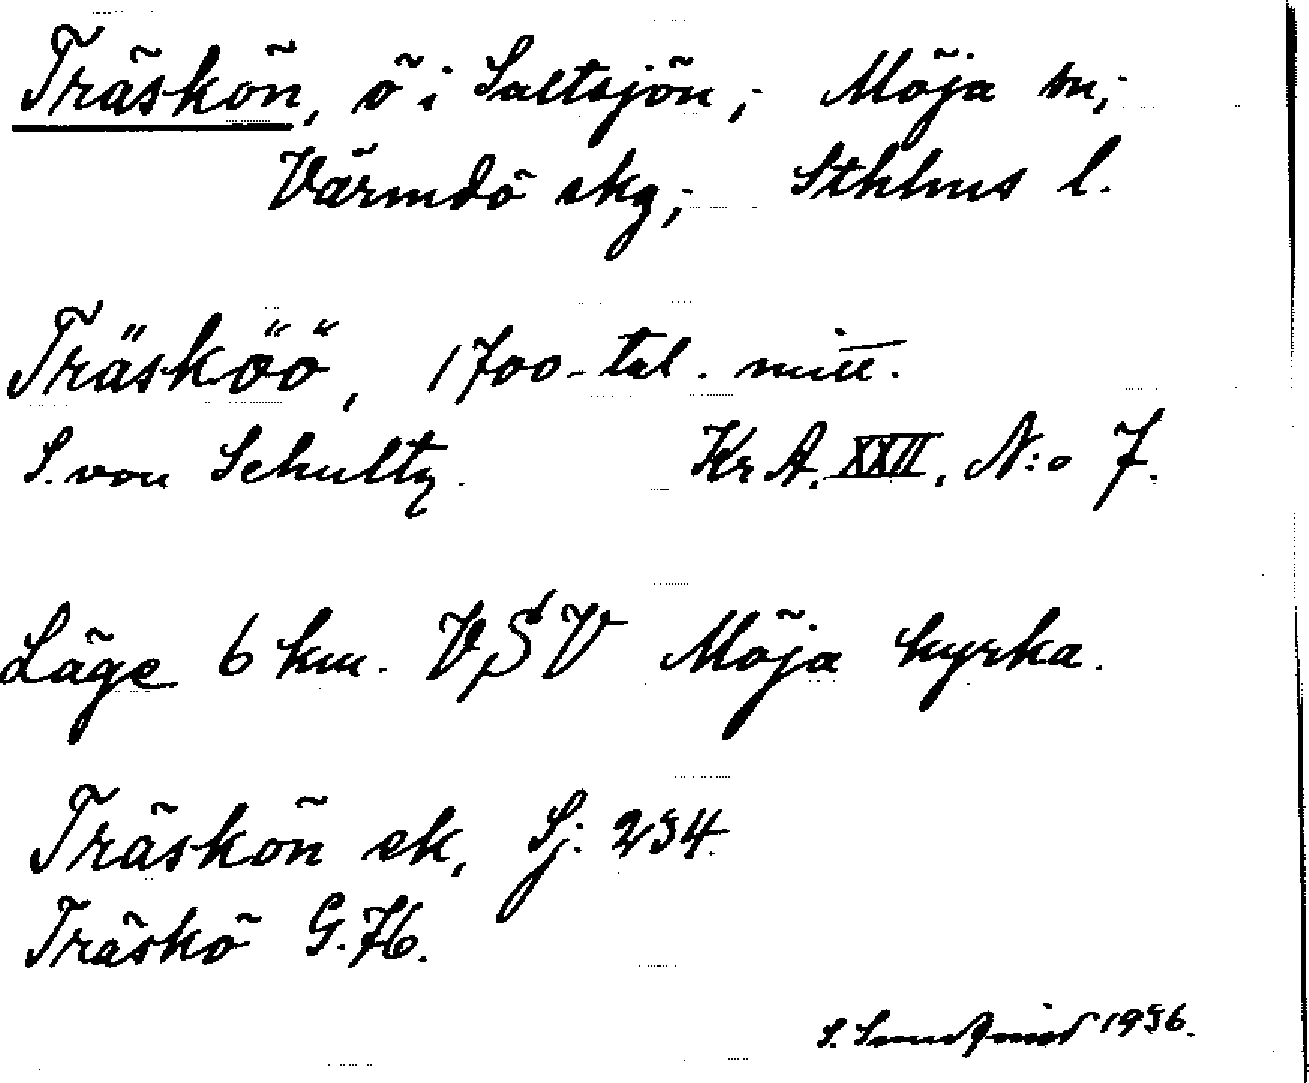 Träskön, ö i Saltsjön,; Möja sn,;
Värmdö skg,; Sthlms l.
Träsköö, 1700-tal. mitt.
S. von Schultz. Kr A. XXII. N:o 7.
Läge 6 km. VSV Möja kyrka.
Träskön ek, Sj: 234.
Träskö G. 76.
S. 1936.